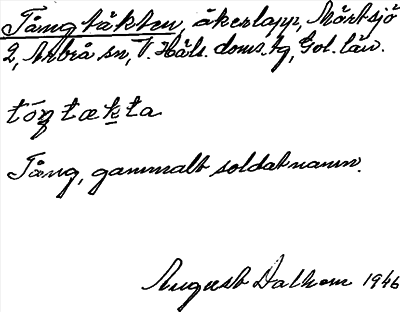 Tångtäkten, åkerlapp, Mårtsjö
2, Arbrå sn, V. Häls. doms.tg, Gvl. län.
tóŋtækta
Tång, gammalt soldatnamn.
August Dalhem 1946